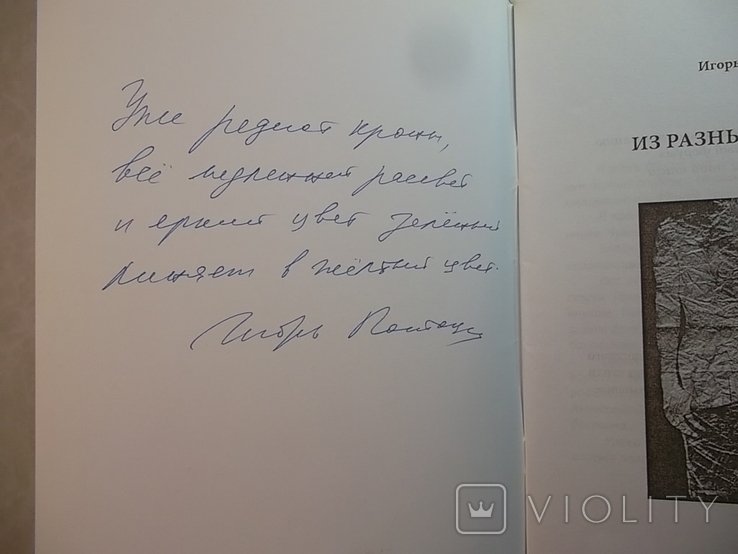 Уже редеют кроны,
всё медленней рассвет
и яркий цвет зелёный
линяет в жёлтый цвет.
Игорь
Игорь
ИЗ РАЗНЫ
VIOLITY